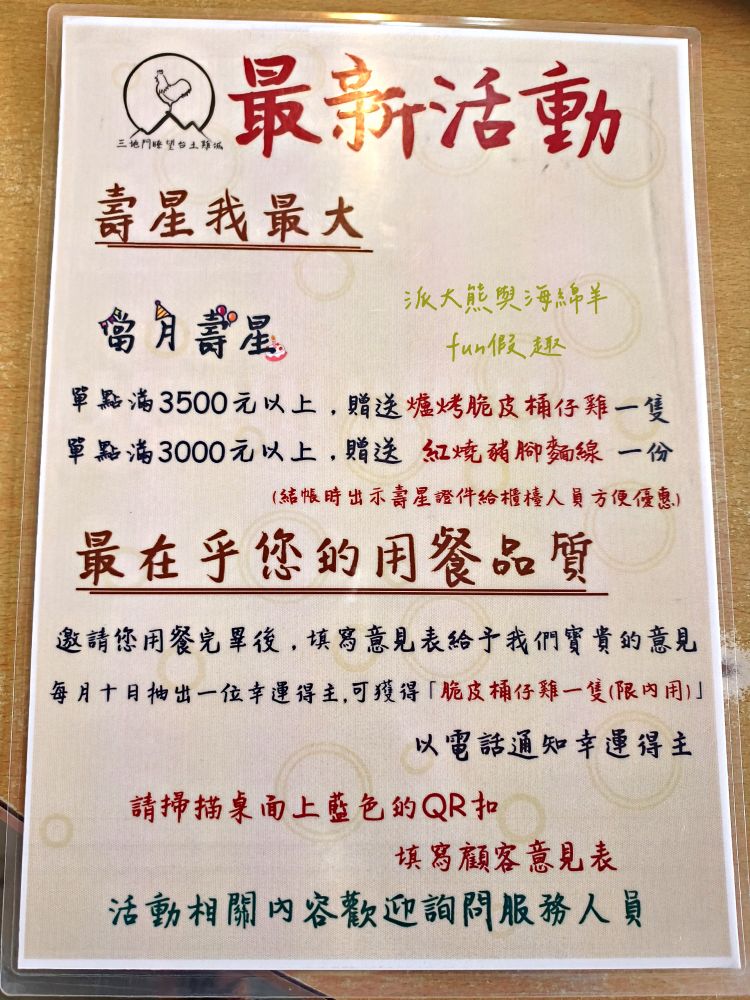 最新活動
三地門瞭望台土雞城
壽星我最大
派大熊與海綿羊
fun假趣
當月壽星
單點滿3500元以上，贈送爐烤脆皮桶仔雞一隻
單點滿3000元以上，贈送 紅燒豬腳麵線 一份
(結帳時出示壽星證件給櫃檯人員方便優惠)
最在乎您的用餐品質
邀請您用餐完畢後，填寫意見表給予我們寶貴的意見
每月十日抽出一位幸運得主,可獲得「脆皮桶仔雞一隻(限內用)」
以電話通知幸運得主
請掃描桌面上藍色的QR扣
填寫顧客意見表
活動相關內容歡迎詢問服務人員